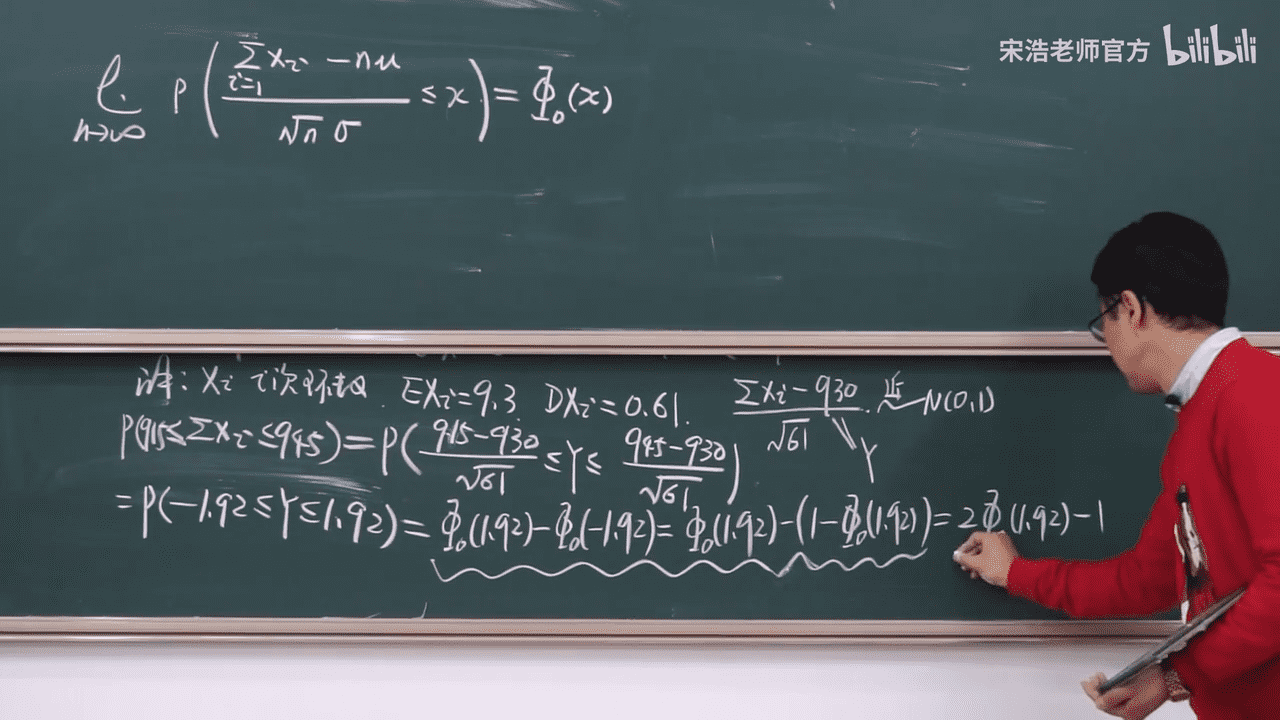 宋浩老师官方 bilibili
l. P( (Σxi - nμ) / (√n σ) ≤ x ) = Φ₀(x)
n→∞ i=1
设: Xi i次环数. EXi=9.3 DXi=0.61. (ΣXi-930)/√61 近~N(0,1)
P(915≤ΣXi≤945)=P( (915-930)/√61 ≤Y≤ (945-930)/√61 ) Y
=P(-1.92≤Y≤1.92)=Φ₀(1.92)-Φ₀(-1.92)=Φ₀(1.92)-(1-Φ₀(1.92))=2Φ(1.92)-1